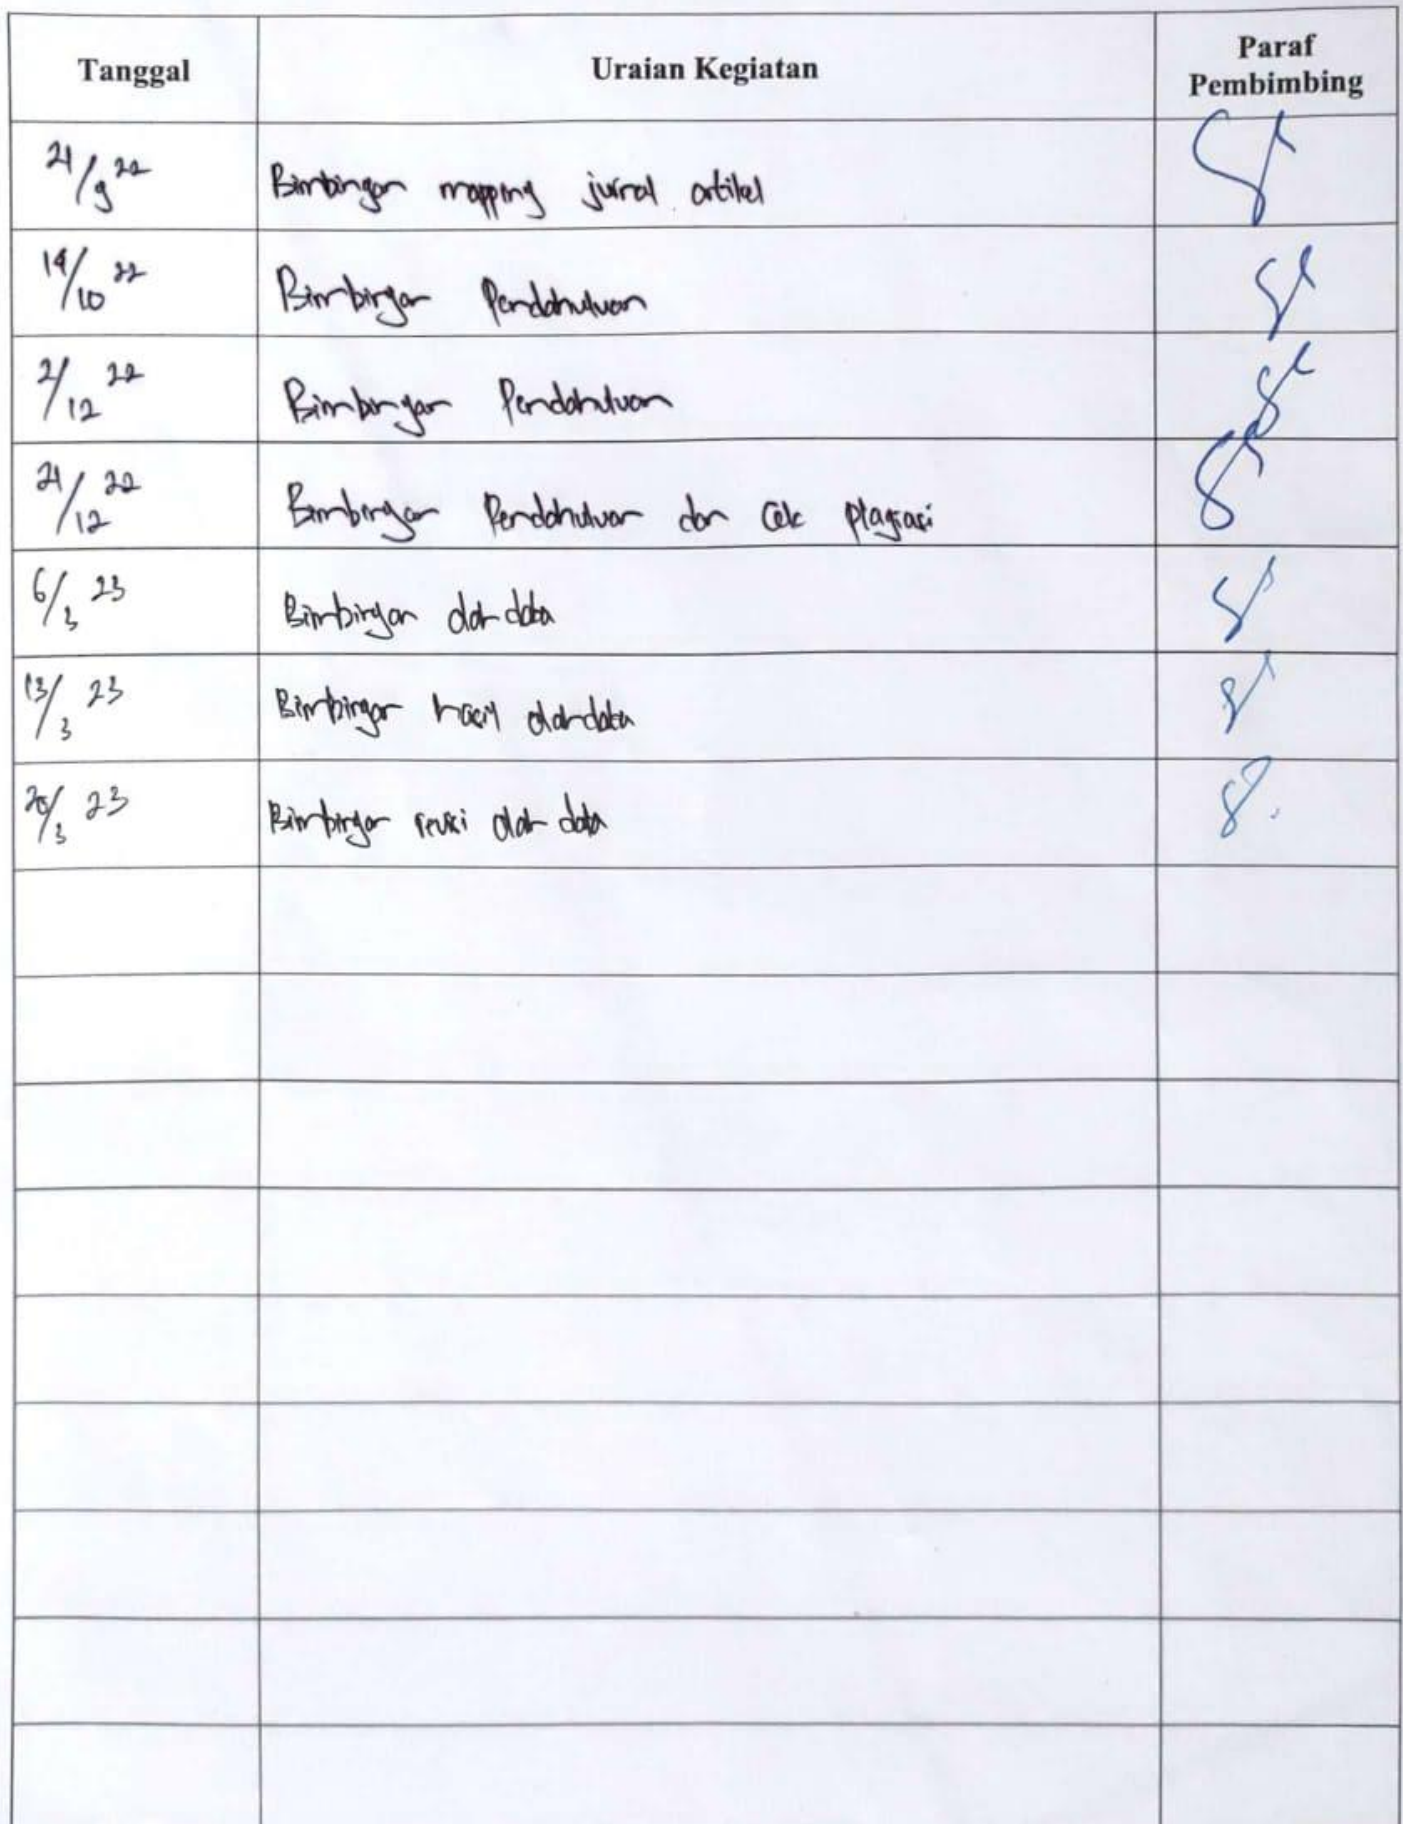 Tanggal Uraian Kegiatan Paraf Pembimbing
21/9 22 Bimbingan mapping jurnal artikel
14/10 22 Bimbingan Pendahuluan
2/12 22 Bimbingan Pendahuluan
21/12 22 Bimbingan Pendahuluan dan Cek plagiasi
6/3 23 Bimbingan olah data
13/3 23 Bimbingan hasil olah data
20/3 23 Bimbingan revisi olah data